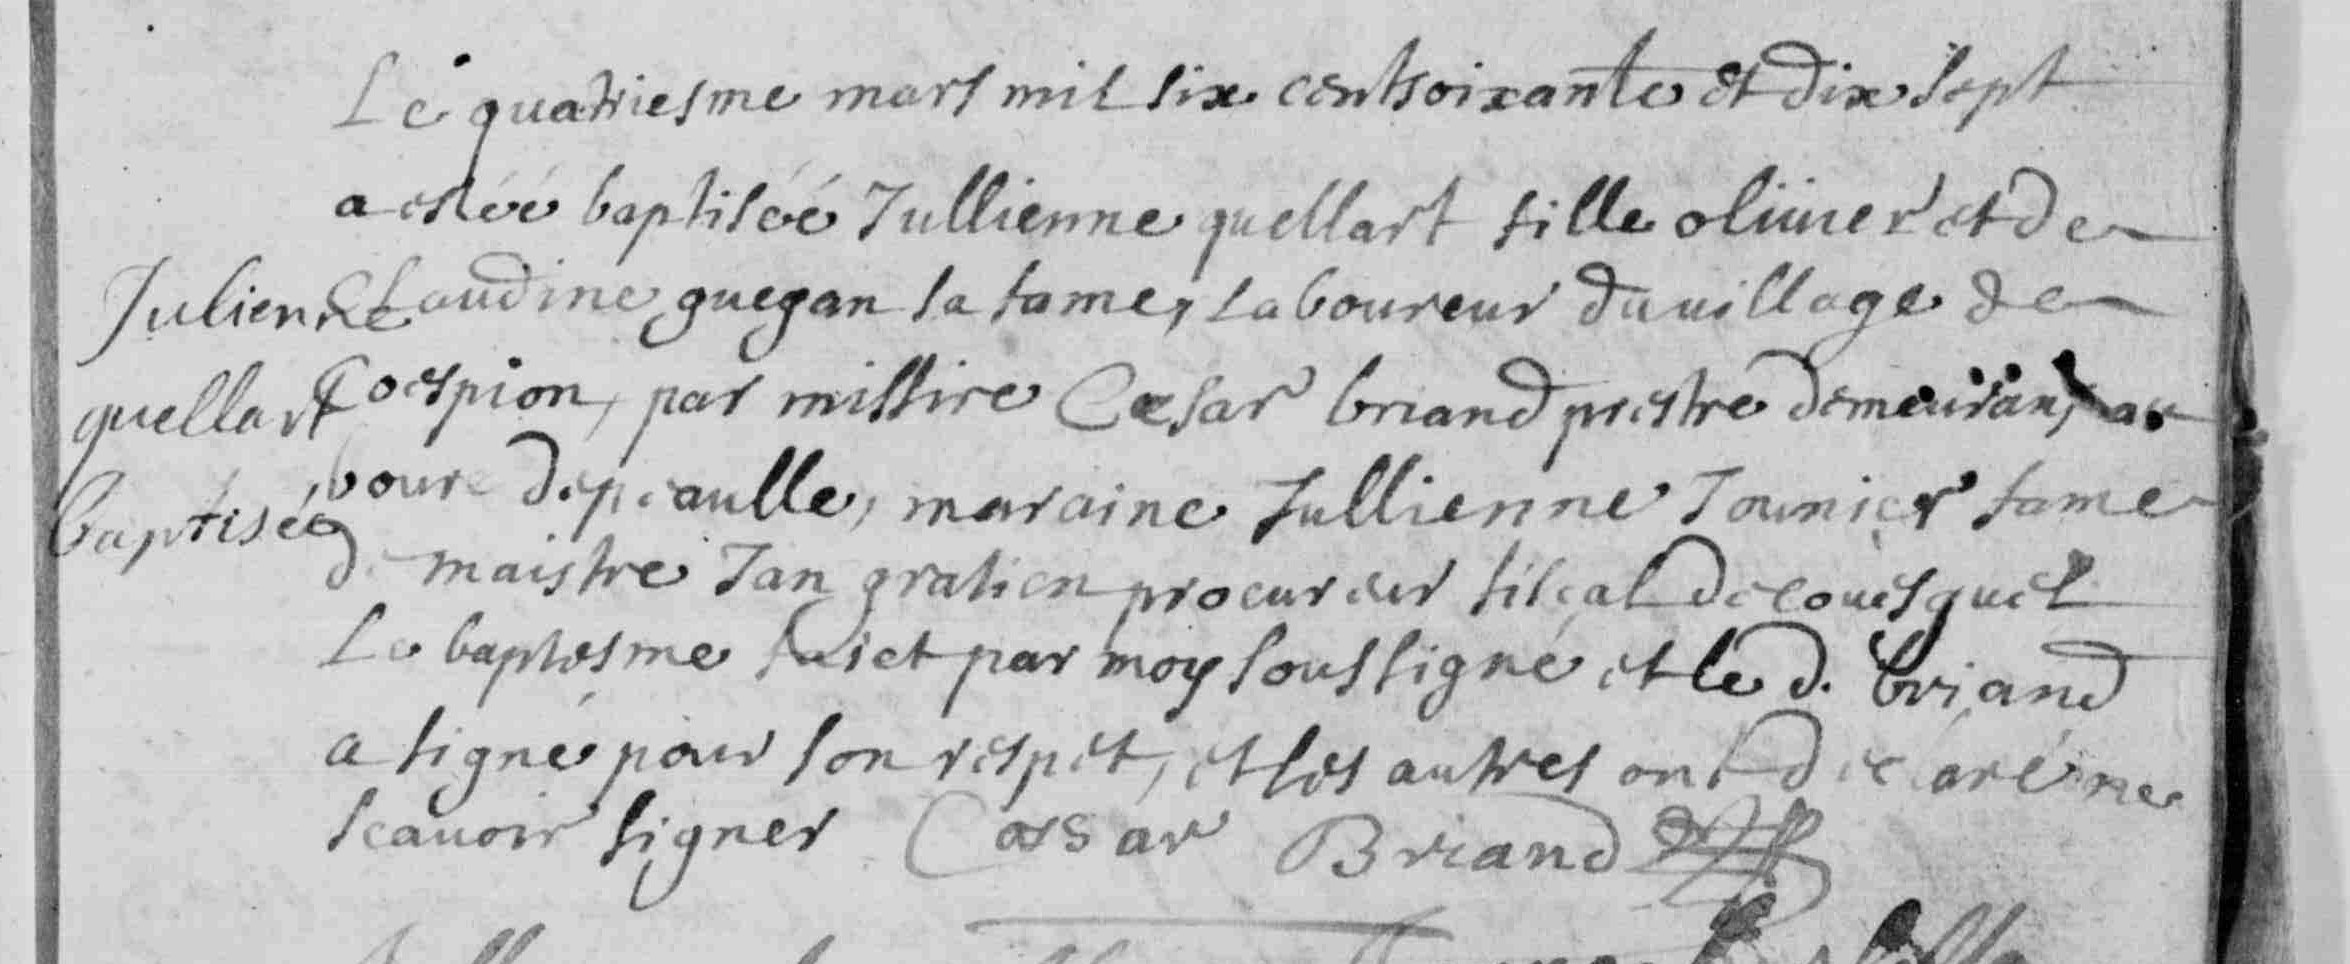 Le quatriesme mars mil six cent soixante et dix sept
a estéé baptiséé Jullienne quellart fille oliuier et de
Julienne
Claudine guegan sa fame, laboureur du uillage de
quellart
Coespion, par missire Cæsar briand prestre demeurant au
baptisée
bourc de peaulle, maraine Jullienne Tournier fame
de maistre Jan gratien procureur fiscal de couesquel
Le baptesme faict par moy soussigné et le d. briand
a signé pour son respet, et les autres ont déclaré ne
scauoir signer Cæsar Briand